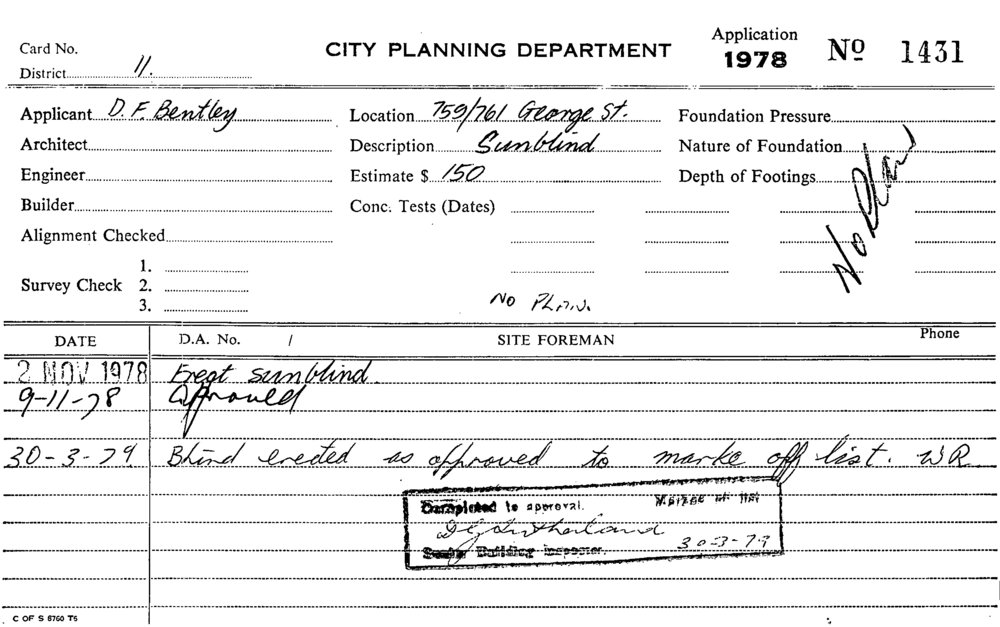 Card No. CITY PLANNING DEPARTMENT Application
District 11. 1978 No 1431
Applicant D. F. Bentley Location 759/761 George St. Foundation Pressure
Architect Description Sunblind Nature of Foundation
Engineer Estimate $ 150 Depth of Footings
No Plan
Builder Conc. Tests (Dates)
Alignment Checked
1.
Survey Check 2.
3.
No Plan.
DATE D.A. No. / SITE FOREMAN Phone
2 NOV 1978 Erect sunblind.
9-11-78 Approved
30-3-79 Blind erected as approved to marke off list. WR
Completed to approval. Marked off list
D G Sutherland
Senior Building Inspector. 30-3-79
C OF S 8760 T5